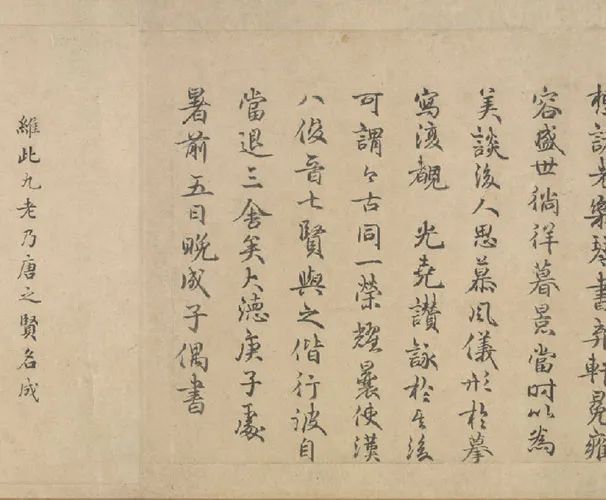 詩老樂琴書弃軒冕雍
容盛世徜徉暮景當时以為
美談後人思慕風儀形於摹
寫復覩 光堯讃詠於其後
可謂今古同一榮耀曩使漢
八俊晉七賢與之偕行彼自
當退三舍矣大德庚子處
暑前五日晚成子偶書
維此九老乃唐之賢名成